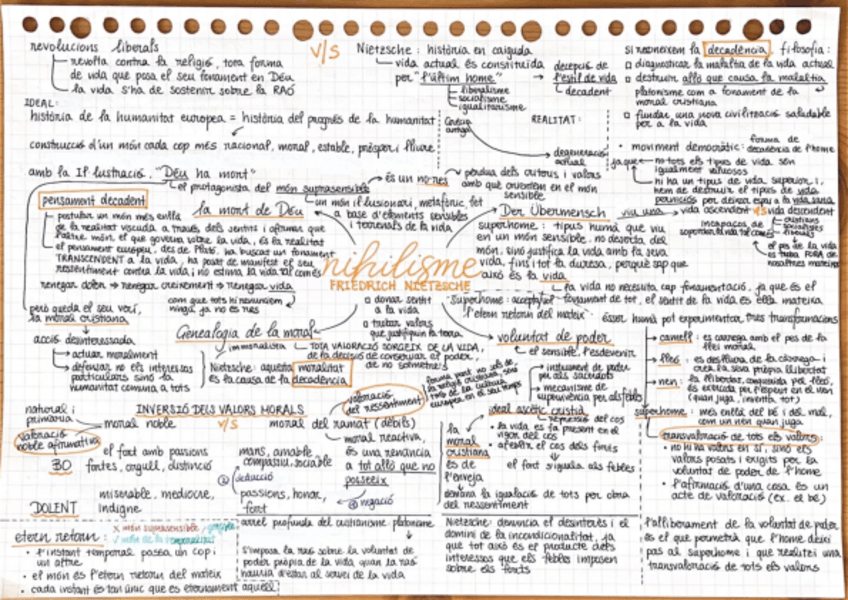 revolucions liberals
revolta contra la religió, tota forma
de vida que posa el seu fonament en Déu
la vida s'ha de sostenir sobre la RAÓ
v/s
Nietzsche: història en caiguda
vida actual és constituïda
per "l'últim home"
liberalisme
socialisme
igualitarisme
decepció de
l'estil de vida
decadent
si reconeixem la decadència, filosofia:
diagnosticar la malaltia de la vida actual
destruir allò que causa la malaltia
platonisme com a fonament de la
moral cristiana
fundar una nova civilització saludable
per a la vida
IDEAL:
història de la humanitat europea = història del progrés de la humanitat
construcció d'un món cada cop més racional, moral, estable, pròsper i lliure
REALITAT:
Grècia
antiga
degeneració
actual
moviment democràtic: forma de
decadència de l'home
ja que
no tots els tipus de vida són
igualment valuosos
hi ha un tipus de vida superior i,
hem de destruir el tipus de vida
perniciós per deixar espai a la vida sana
amb la Il·lustració. "Déu ha mort"
el protagonista del món suprasensible
és un no-res
pèrdua dels valors
amb què orientem en el món
sensible
un món il·lusionari, metafòric, fet
a base d'elements sensibles
i terrenals de la vida
pensament decadent
postular un món més enllà
de la realitat viscuda a través dels sentits i afirmar que
l'altre món, el que governa sobre la vida, és la realitat
el pensament europeu, des de Plató, ha buscat un fonament
TRANSCENDENT a la vida, ha posat de manifest el seu
ressentiment contra la vida i no estima la vida tal com és
renegar dolor → renegar creixement → renegar vida
com que tots hi renunciem
ningú ja no és res
la mort de Déu
nihilisme
FRIEDRICH NIETZSCHE
donar sentit
a la vida
trobar valors
que justifiquin la teoria
Der Übermensch
viu una
vida ascendent v/s vida descendent
superhome: tipus humà que viu
en un món sensible, no deserta del
món, sinó justifica la vida amb la seva
vida, fins i tot la duresa, perquè sap que
això és la vida
incapaços de
cristians
socialistes
el pes de la vida
es troba FORA de
nosaltres mateixos
la vida no necessita cap fonamentació, ja que és el
fonament de tot, el sentit de la vida és ella mateixa
superhome: acceptació
l'etern retorn del mateix
ésser humà pot experimentar tres transformacions
camell: es carrega amb el pes de la
llei moral
lleó: es deslliura de la càrrega i
crea la seva pròpia llibertat
nen: la llibertat, conquerida pel lleó,
és exercida per l'esperit en el nen
(quan juga, inventa tot)
superhome: més enllà del bé i del mal,
com un nen quan juga
però queda el seu verí,
la moral cristiana
acció desinteressada
actuar moralment
defensar no els interessos
particulars sinó la
humanitat comuna a tots
Genealogia de la moral
immoralista
TOTA VALORACIÓ SORGEIX DE LA VIDA,
de la decisió de conservar el poder,
de no sotmetre's
Nietzsche: aquesta moralitat
és la causa de la decadència
voluntat de poder
el sensible, l'esdevenir
instrument de poder
per als sacerdots
mecanisme de
supervivència per als febles
ideal ascètic cristià
repressió del cos
la vida es fa present en el
rigor del cos
afeblir el cos dels forts
el fort s'iguala als febles
valoració
del ressentiment
forma part no sols de
la religió cristiana, sinó
tota la cultura
europea en el seu temps
INVERSIÓ DELS VALORS MORALS
natural i
primària
valoració
noble afirmativa
moral noble
v/s
moral del ramat (dèbils)
moral reactiva,
és una renúncia
a tot allò que no
posseeix
BO
el fort amb passions
fortes, orgull, distinció
mans, amable
compassiu, sociable
② deducció
① negació
DOLENT
miserable, mediocre,
indigne
passions, honor,
fort
la
moral
cristiana
és de
l'enveja
demana la igualació de tots per obra
del ressentiment
transvaloració de tots els valors:
no hi ha valors en si, sinó els
valors posats i exigits per la
voluntat de poder de l'home
l'afirmació d'una cosa és un
acte de valoració (ex. el bé)
etern retorn:
x món suprasensible
l'instant temporal passa un cop i
un altre
el món és l'etern retorn del mateix
cada instant és tan únic que es eternament aquell
arrel profunda del cristianisme: platonisme
s'imposa la raó sobre la voluntat de
poder pròpia de la vida quan la raó
hauria d'estar al servei de la vida
Nietzsche: denuncia el desinterès i el
domini de la incondicionalitat, ja
que tot això és el producte dels
interessos que els febles imposen
sobre els forts
l'alliberament de la voluntat de poder
és el que permetrà que l'home deixi
pas al superhome i que realitzi una
transvaloració de tots els valors